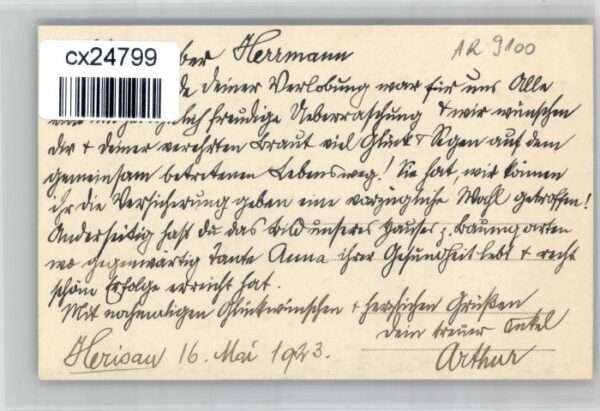 cx24799
ber Herrmann
AR 9100
de deiner Verlobung war für uns Alle
freudige Ueberraschung & wir wünschen
dir & deiner verehrten Braut viel Glück & Segen auf dem
gemeinsam betretenen Lebensweg! Sie hat, wir können
ihr die Versicherung geben eine vorzügliche Wahl getroffen!
Anderseitig hast du das Bild unseres Hauses z. Baumgarten
wo gegenwärtig Tante Anna ihrer Gesundheit lebt & recht
schöne Erfolge erreicht hat.
Mit nochmaligen Glückwünschen & herzlichen Grüßen
dein treuer Onkel
Herisau 16. Mai 1923.
Arthur